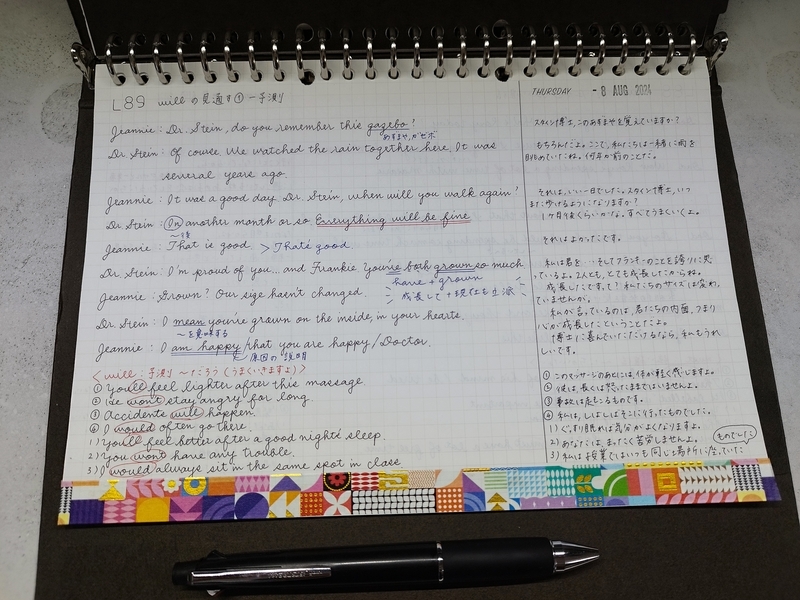 L89 willの見通す①ー予測
Jeannie: Dr. Stein, do you remember this gazebo?
あずまや, ガゼボ
Dr. Stein: Of course. We watched the rain together here. It was
several years ago.
Jeannie: It was a good day. Dr. Stein, when will you walk again?
Dr. Stein: In another month or so. Everything will be fine
～後
Jeannie: That is good. > That's good.
Dr. Stein: I'm proud of you... and Frankie. You're both grown so much
have + grown
Jeannie: Grown? Our size hasn't changed.
成長して+現在も立派
Dr. Stein: I mean you're grown on the inside, in your hearts.
～を意味する
Jeannie: I am happy / that you are happy / Doctor.
原因の説明
<will: 予測 ～だろう (うまくいきますよ)>
① You'll feel lighter after this massage.
② He won't stay angry for long.
③ Accidents will happen.
④ I would often go there.
1) You'll feel better after a good night's sleep.
2) You won't have any trouble.
3) I would always sit in the same spot in class
THURSDAY - 8 AUG 2024
スタイン博士, このあずまやを覚えていますか?
もちろんだよ。ここで, 私たちは一緒に雨を
眺めていたね。何年か前のことだ。
それは, いい一日でした。スタイン博士, いつ
また歩けるようになりますか?
1ヶ月後くらいかな。すべてうまくいくよ。
それはよかったです。
私は君を…そしてフランキーのことを誇りに思
っているよ。2人とも, とても成長したからね。
成長したですって? 私たちのサイズは変わっ
ていませんが。
私が言っているのは, 君たちの内面, つまり
心が成長したということだよ。
博士に喜んでいただけるなら, 私もうれ
しいです。
① このマッサージのあとには, 体が軽く感じますよ。
② 彼は, 長くは怒ったままではいませんよ。
③ 事故は起こるものです。
④ 私は, しばしばそこに行ったものでした。
1) ぐっすり眠れば気分がよくなりますよ。
2) あなたは, まったく苦労しませんよ。
ものでした
3) 私は授業ではいつも同じ場所に座っていた